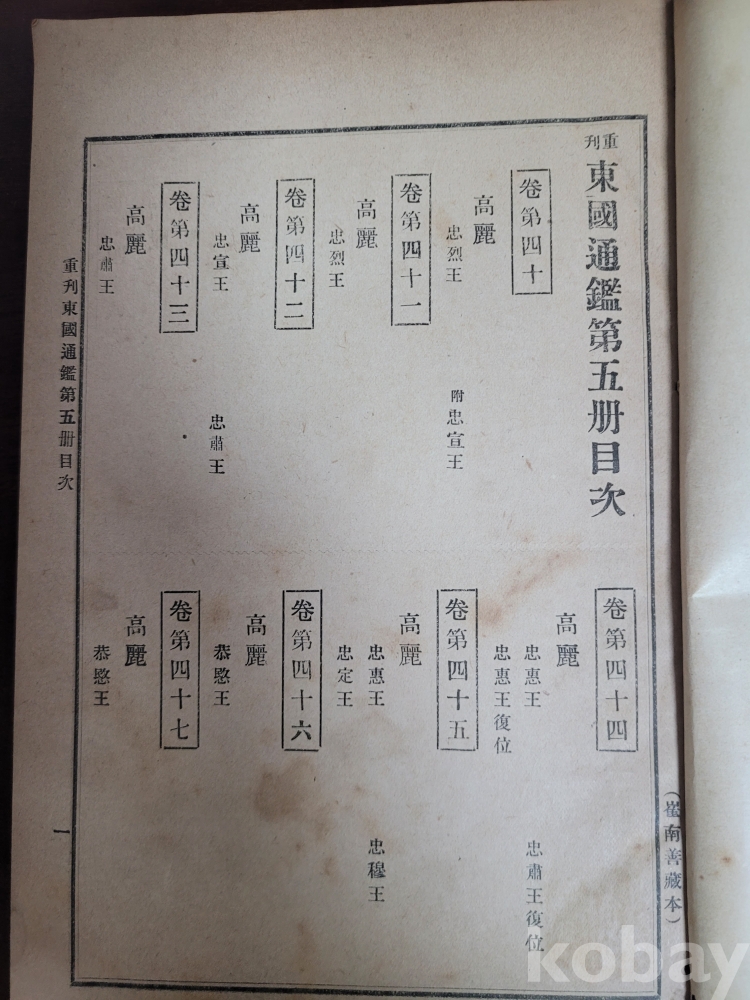 重刊 東國通鑑第五册目次
卷第四十
高麗
忠烈王 附忠宣王
卷第四十一
高麗
忠烈王
卷第四十二
高麗
忠宣王 忠肅王
卷第四十三
高麗
忠肅王
卷第四十四
高麗
忠惠王 忠肅王復位
忠惠王復位
卷第四十五
高麗
忠惠王 忠穆王
忠定王
卷第四十六
高麗
恭愍王
卷第四十七
高麗
恭愍王
重刊東國通鑑第五册目次
一
(崔南善藏本)
kobay